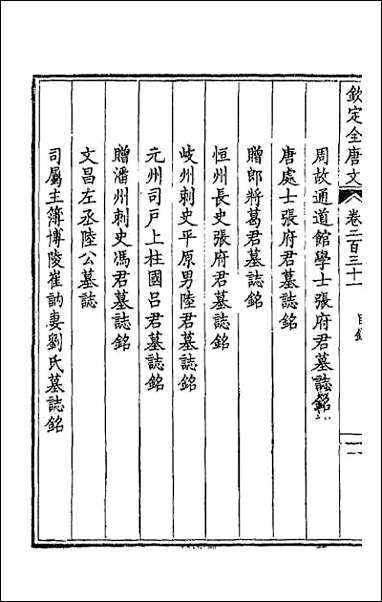 欽定全唐文 卷二百三十一 目錄
周故通道館學士張府君墓誌銘
唐處士張府君墓誌銘
贈郎將葛君墓誌銘
恒州長史張府君墓誌銘
岐州刺史平原男陸君墓誌銘
元州司戶上柱國呂君墓誌銘
贈潘州刺史馮君墓誌銘
文昌左丞陸公墓誌
司屬主簿博陵崔訥妻劉氏墓誌銘